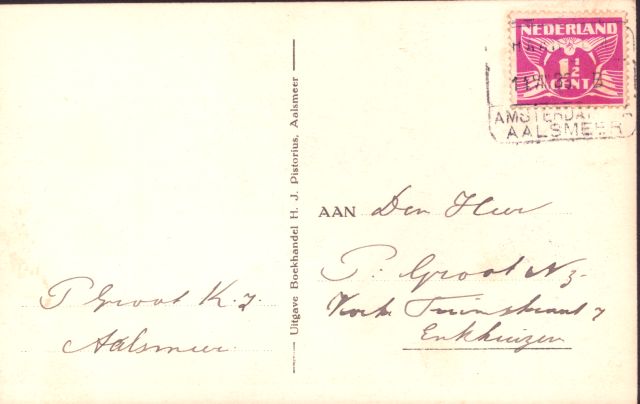 NEDERLAND
1½
CENT
AMSTERDA
AALSMEER
Uitgave Boekhandel H. J. Pistorius, Aalsmeer
AAN Den Heer
P. Groot Nz.
Tuinstraat 7
Enkhuizen
P Groot K.z.
Aalsmeer.